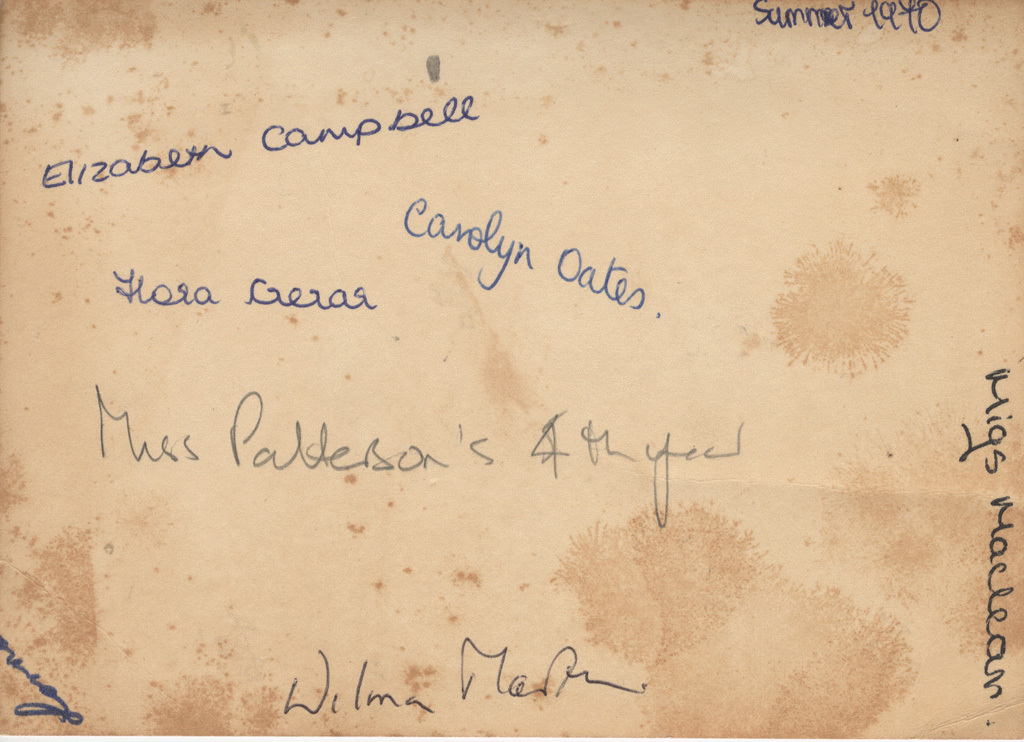 Summer 1970
Elizabeth Campbell
Carolyn Oates.
Flora Gerar
Miss Patterson's 4th year
Migs Maclean.
Wilma Martin.